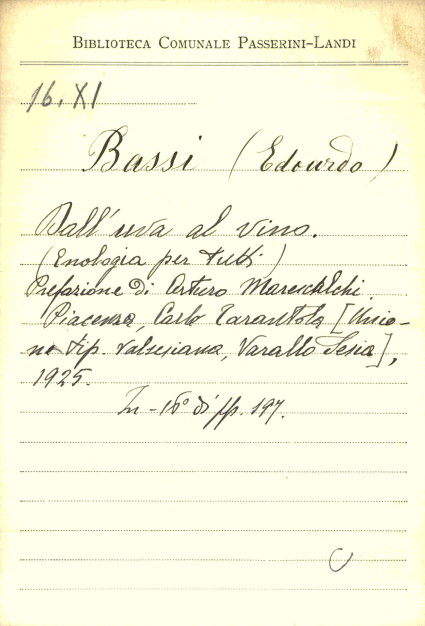 BIBLIOTECA COMUNALE PASSERINI-LANDI
16. XI
Bassi (Edoardo)
Dall'uva al vino.
(Enologia per tutti)
Prefazione di Arturo Marescalchi.
Piacenza, Carlo Tarantola [Unio-
ne tip. Valsesiana, Varallo Sesia],
1925.
In-16° di pp. 197.
C